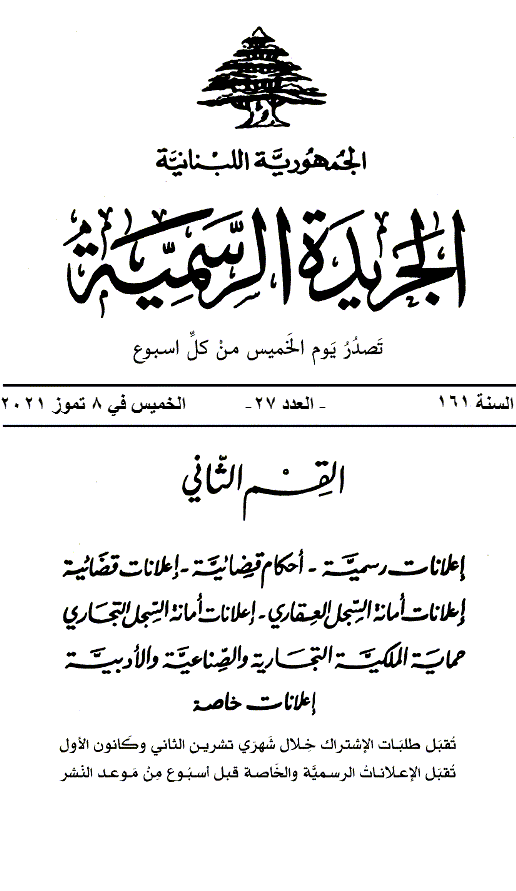 الجُمهُوريَّة اللبْنانيَّة
الجَريدَة الرسَّمِيَّة
تَصدُرُ يَوم الخَميس منْ كلِّ اسبوع
السنة ١٦١ - العدد ٢٧- الخميس في ٨ تموز ٢٠٢١
القِسْم الثّاني
إعلانات رسميَّة - أحكام قضائيَّة - إعلانات قضائية
إعلانات أمانة السِّجل العِقاري - إعلانات أمانة السِّجل التجاري
حماية الملكيَّة التجارية والصِّناعيَّة والأدبيَّة
إعلانات خاصة
تُقبَل طلبَات الإشتراك خِلال شَهرَي تشرين الثاني وكَانون الأول
تُقبَل الإعلاناتُ الرسميَّة والخَاصة قبل أسبُوع مِنْ مَوعد النّشر